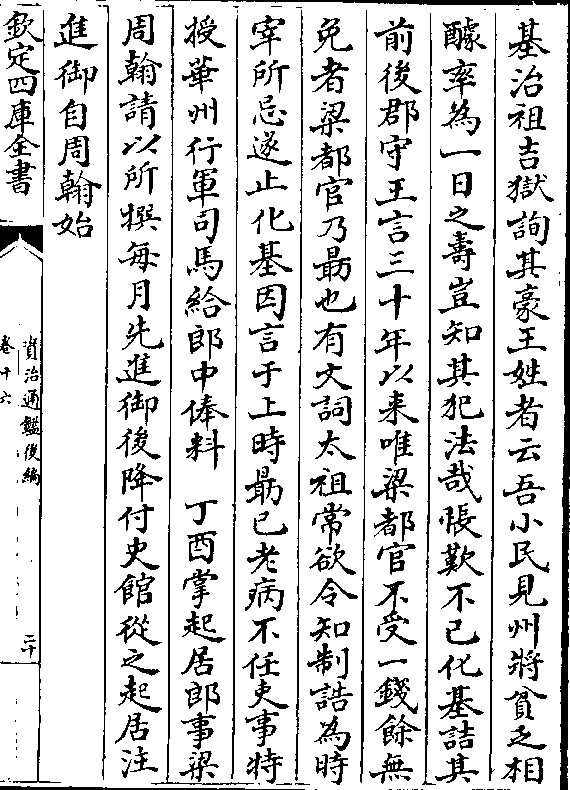 基治祖吉獄詢其豪王姓者云吾小民見州將貧乏相
醵率為一日之壽豈知其犯法哉張歎不已化基詰其
前後郡守王言三十年以来唯梁都官不受一錢餘無
免者梁都官乃勗也有文詞太祖常欲令知制誥為時
宰所忌遂止化基因言于上時勗已老病不任吏事特
授華州行軍司馬給郎中俸料　丁酉掌起居郎事梁
周翰請以所撰每月先進御後降付史館從之起居注
進御自周翰始
欽定四庫全書
資治通鑑後編
卷十六
二十